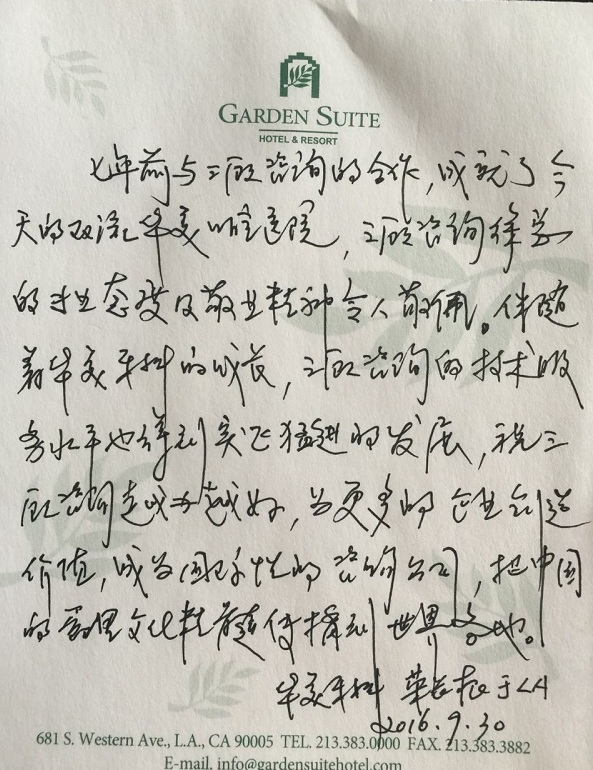 GARDEN SUITE
HOTEL & RESORT
七年前与三顾咨询的合作,成就了今
天的双流华美口腔医院,三顾咨询
的专业态度及敬业精神令人敬佩。伴随
着华美牙科的成长,三顾咨询的技术服
务水平也得到突飞猛进的发展,祝三
顾咨询越办越好,为更多的企业创造
价值,成为国际性的咨询公司,把中国
的管理文化精髓传播到世界各地。
华美牙科 于LA
2016.9.30
681 S. Western Ave., L.A., CA 90005 TEL. 213.383.0000 FAX. 213.383.3882
E-mail. info@gardensuitehotel.com